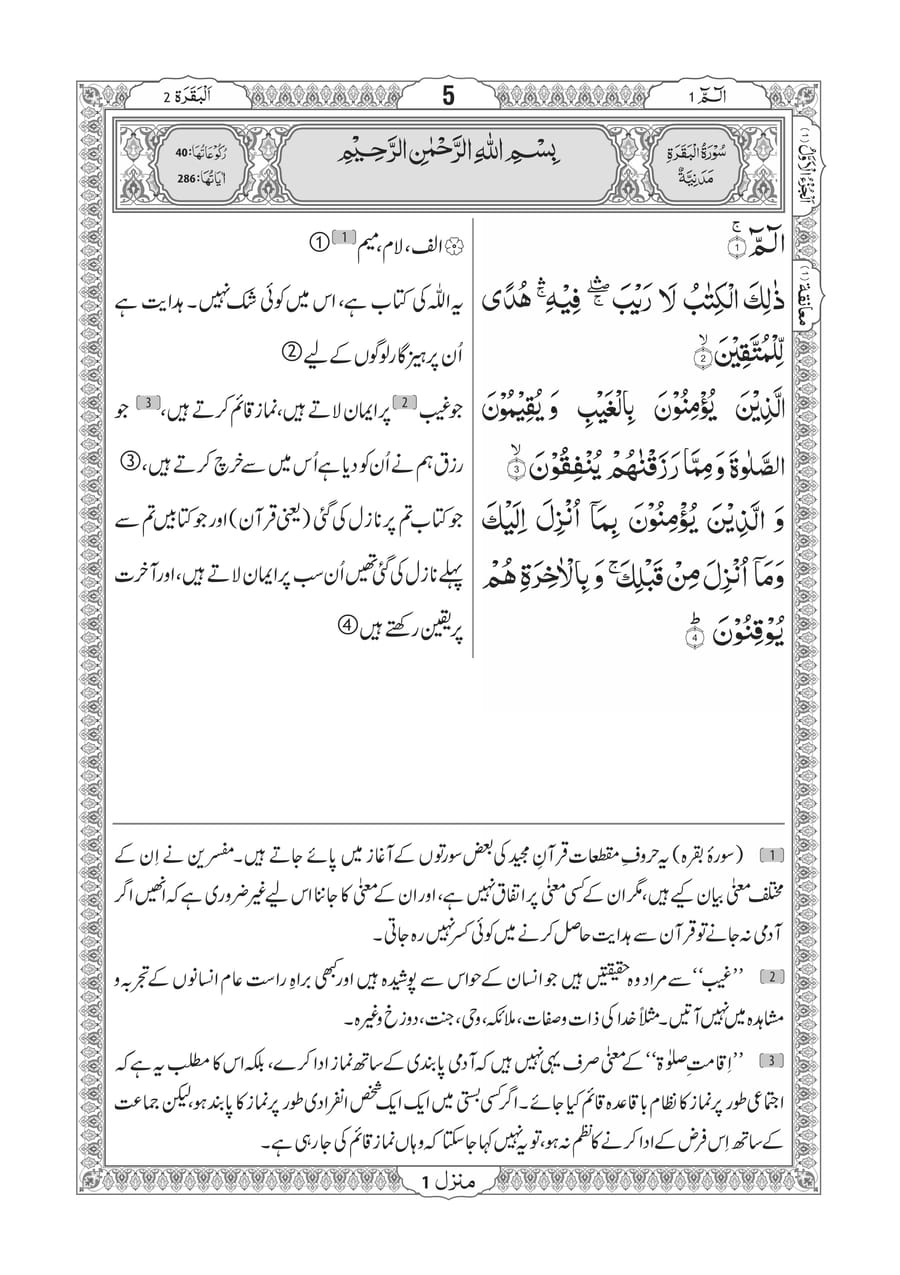 الٓمّٓ 1
5
اَلْبَقَرَة 2
اَلْجُزْءُ الْاَوَّلُ (۱)
معانقۃ (۱)
سُوْرَةُ الْبَقَرَةِ
مَدَنِيَّةٌ
بِسْمِ اللهِ الرَّحْمٰنِ الرَّحِيْمِ
رُكُوْعَاتُهَا: 40
اٰيَاتُهَا: 286
الٓمّٓ ۚ 1
ذٰلِكَ الْكِتٰبُ لَا رَيْبَ ۛۖ فِيْهِ ۛۚ هُدًى
لِّلْمُتَّقِيْنَ ۙ 2
الَّذِيْنَ يُؤْمِنُوْنَ بِالْغَيْبِ وَ يُقِيْمُوْنَ
الصَّلٰوةَ وَ مِمَّا رَزَقْنٰهُمْ يُنْفِقُوْنَ ۙ 3
وَ الَّذِيْنَ يُؤْمِنُوْنَ بِمَاۤ اُنْزِلَ اِلَيْكَ
وَمَاۤ اُنْزِلَ مِنْ قَبْلِكَ ۚ وَ بِالْاٰخِرَةِ هُمْ
يُوْقِنُوْنَ ؕ 4
الف، لام، میم 1 ①
یہ اللہ کی کتاب ہے، اس میں کوئی شک نہیں۔ ہدایت ہے
اُن پرہیزگار لوگوں کے لیے ②
جو غیب 2 پر ایمان لاتے ہیں، نماز قائم کرتے ہیں، 3 جو
رزق ہم نے اُن کو دیا ہے اُس میں سے خرچ کرتے ہیں، ③
جو کتاب تم پر نازل کی گئی (یعنی قرآن) اور جو کتابیں تم سے
پہلے نازل کی گئی تھیں اُن سب پر ایمان لاتے ہیں، اور آخرت
پر یقین رکھتے ہیں ④
1 (سورۂ بقرہ) یہ حروفِ مقطعات قرآنِ مجید کی بعض سورتوں کے آغاز میں پائے جاتے ہیں۔ مفسرین نے اِن کے
مختلف معنٰی بیان کیے ہیں، مگر ان کے کسی معنٰی پر اتفاق نہیں ہے، اور ان کے معنٰی کا جاننا اس لیے غیر ضروری ہے کہ انھیں اگر
آدمی نہ جانے تو قرآن سے ہدایت حاصل کرنے میں کوئی کسر نہیں رہ جاتی۔
2 ’’غیب‘‘ سے مراد وہ حقیقتیں ہیں جو انسان کے حواس سے پوشیدہ ہیں اور کبھی براہِ راست عام انسانوں کے تجربہ و
مشاہدہ میں نہیں آتیں۔ مثلاً خدا کی ذات و صفات، ملائکہ، وحی، جنت، دوزخ وغیرہ۔
3 ’’اِقامتِ صلوٰۃ‘‘ کے معنٰی صرف یہی نہیں ہیں کہ آدمی پابندی کے ساتھ نماز ادا کرے، بلکہ اس کا مطلب یہ ہے کہ
اجتماعی طور پر نماز کا نظام باقاعدہ قائم کیا جائے۔ اگر کسی بستی میں ایک ایک شخص انفرادی طور پر نماز کا پابند ہو، لیکن جماعت
کے ساتھ اِس فرض کے ادا کرنے کا نظم نہ ہو، تو یہ نہیں کہا جا سکتا کہ وہاں نماز قائم کی جا رہی ہے۔
منزل 1